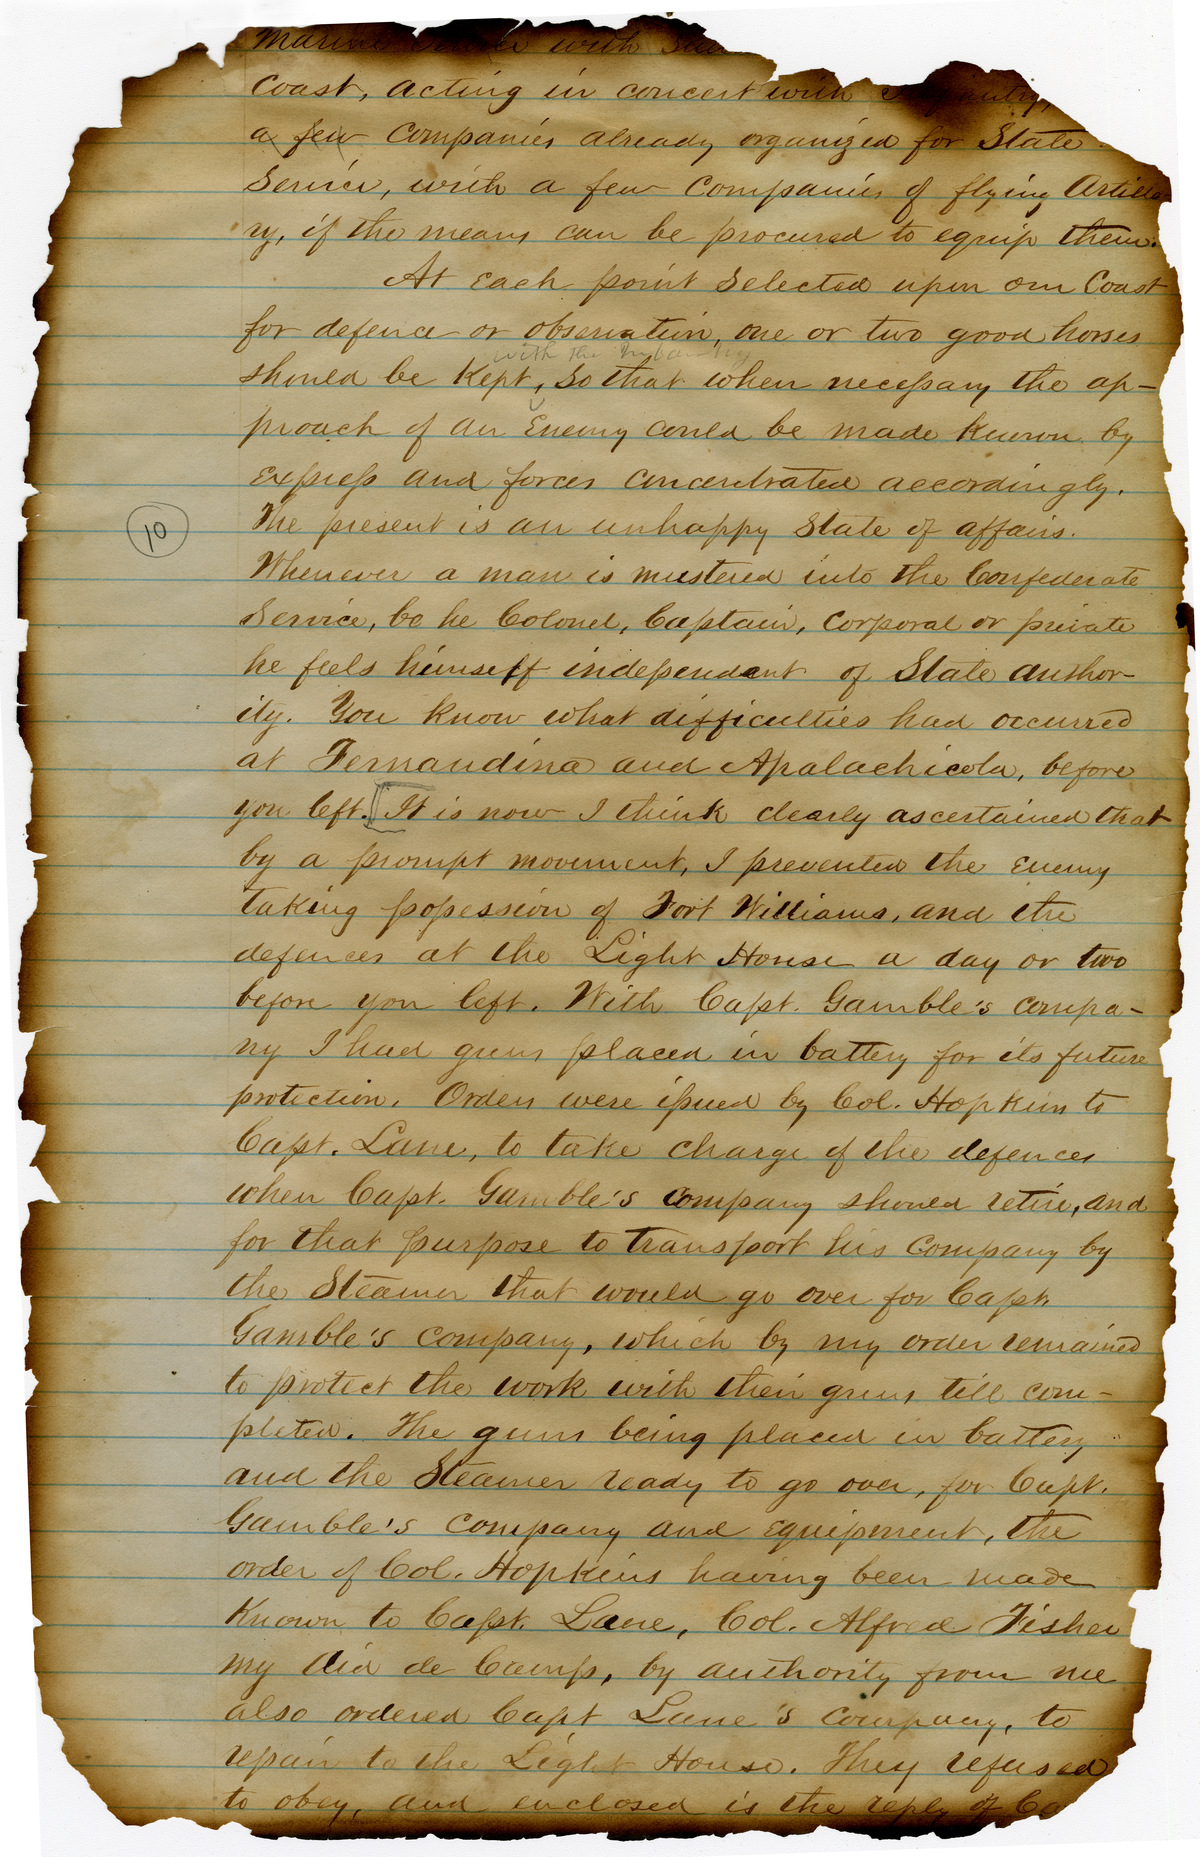 Marine with
Coast, acting in concert with
a few Companies already organized for State
Service, with a few Companies of flying Artille-
ry, if the means can be procured to equip them.
At each point selected upon our Coast
for defence or observation, one or two good horses
with the Infantry
should be Kept, so that when necessary the ap-
proach of an Enemy could be made Known by
express and forces concentrated accordingly.
The present is an unhappy State of affairs.
10
Whenever a man is mustered into the Confederate
Service, be he Colonel, Captain, Corporal or private
he feels himself independant of State author-
ity. You know what difficulties had occurred
at Fernandina and Apalachicola, before
you left. [It is now I think clearly ascertained that
by a prompt movement, I prevented the Enemy
taking possession of Fort Williams, and the
defences at the Light House a day or two
before you left. With Capt. Gamble's compa-
ny I had guns placed in battery for its future
protection. Orders were issued by Col. Hopkins to
Capt. Lane, to take charge of the defences
when Capt. Gamble's company should retire, and
for that purpose to transport his company by
the Steamer that would go over for Capt.
Gamble's company, which by my order remained
to protect the work with their guns till com-
pleted. The guns being placed in battery
and the Steamer ready to go over, for Capt.
Gamble's company and equipment, the
order of Col. Hopkins having been made
Known to Capt. Lane, Col. Alfred Fisher
my Aid de Camp, by authority from me
also ordered Capt Lane's company, to
repair to the Light House. They refused
to obey, and enclosed is the reply of